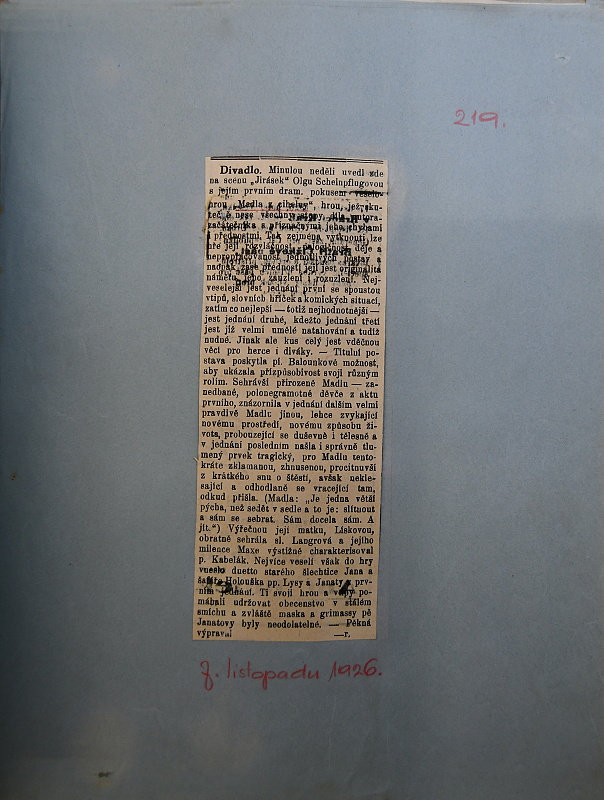 219.
Divadlo. Minulou neděli uvedl zde
na scenu „Jirásek“ Olgu Scheinpflugovou
s jejím prvním dram. pokusem veselo-
hrou „Madla z cihelny“, hrou, jež sku-
teč ě nese všechny stopy díla autora-
začátečníka s příznačnými jeho chybami
i přednostmi. Tak zejména vytknouti lze
hře její rozvláčnost, děje a
nepropracovanost jednotlivých postav a
naopak zase předností její jest originalita
námětu, jeho zauzlení i rozuzlení. Nej-
veselejší jest jednání první se spoustou
vtipů, slovních hříček a komických situací,
zatím co nejlepší — totiž nejhodnotnější —
jest jednání druhé, kdežto jednání třetí
jest již velmi umělé natahování a tudíž
nudné. Jinak ale kus celý jest vděčnou
věcí pro herce i diváky. — Titulní po-
stava poskytla pí. Balounkové možnost,
aby ukázala přizpůsobivost svoji různým
rolím. Sehrávši přirozeně Madlu — za-
nedbané, polonegramotné děvče z aktu
prvního, znázornila v jednání dalším velmi
pravdivě Madlu jinou, lehce zvykající
novému prostředí, novému způsobu ži-
vota, probouzející se duševně i tělesně a
v jednání posledním našla i správně tlu-
mený prvek tragický, pro Madlu tento-
kráte zklamanou, zhnusenou, procitnuvší
z krátkého snu o štěstí, avšak nekle-
sající a odhodlaně se vracející tam,
odkud přišla. (Madla: „Je jedna větší
pýcha, než sedět v sedle a to je: slítnout
a sám se sebrat. Sám docela sám. A
jít.“) Výřečnou její matku, Lískovou,
obratně sehrála sl. Langrová a jejího
milence Maxe výstižně charakterisoval
p. Kabelák. Nejvíce veselí však do hry
vneslo duetto starého šlechtice Jana a
Holouška pp. Lysy a Janaty v prv-
ním jednání. Ti svojí hrou a vtipy po-
máhali udržovat obecenstvo v stálém
smíchu a zvláště maska a grimassy pě
Janatovy byly neodolatelné. — Pěkná
výprava! —r.
7. listopadu 1926.